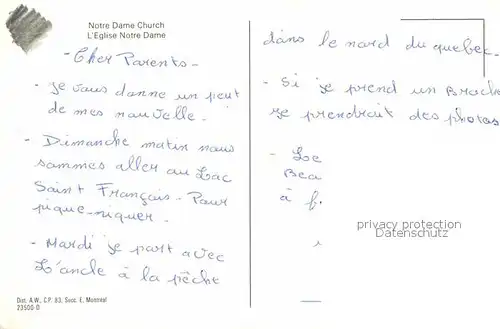 Notre Dame Church
L'Eglise Notre Dame
- Cher Parents -
- Je vous donne un peut
de mes nouvelle -
- Dimanche matin nous
sommes aller au Lac
Saint François - Pour
pique-niquer -
- Mardi je part avec
L'oncle à la pêcht
Dist. A.W., C.P. 83, Succ. E, Montréal
23500-D
dans le nord du quebec -
- Si je prend un Broche
je prendrait des photos
- Le
Bea
à f.
privacy protection
Datenschutz